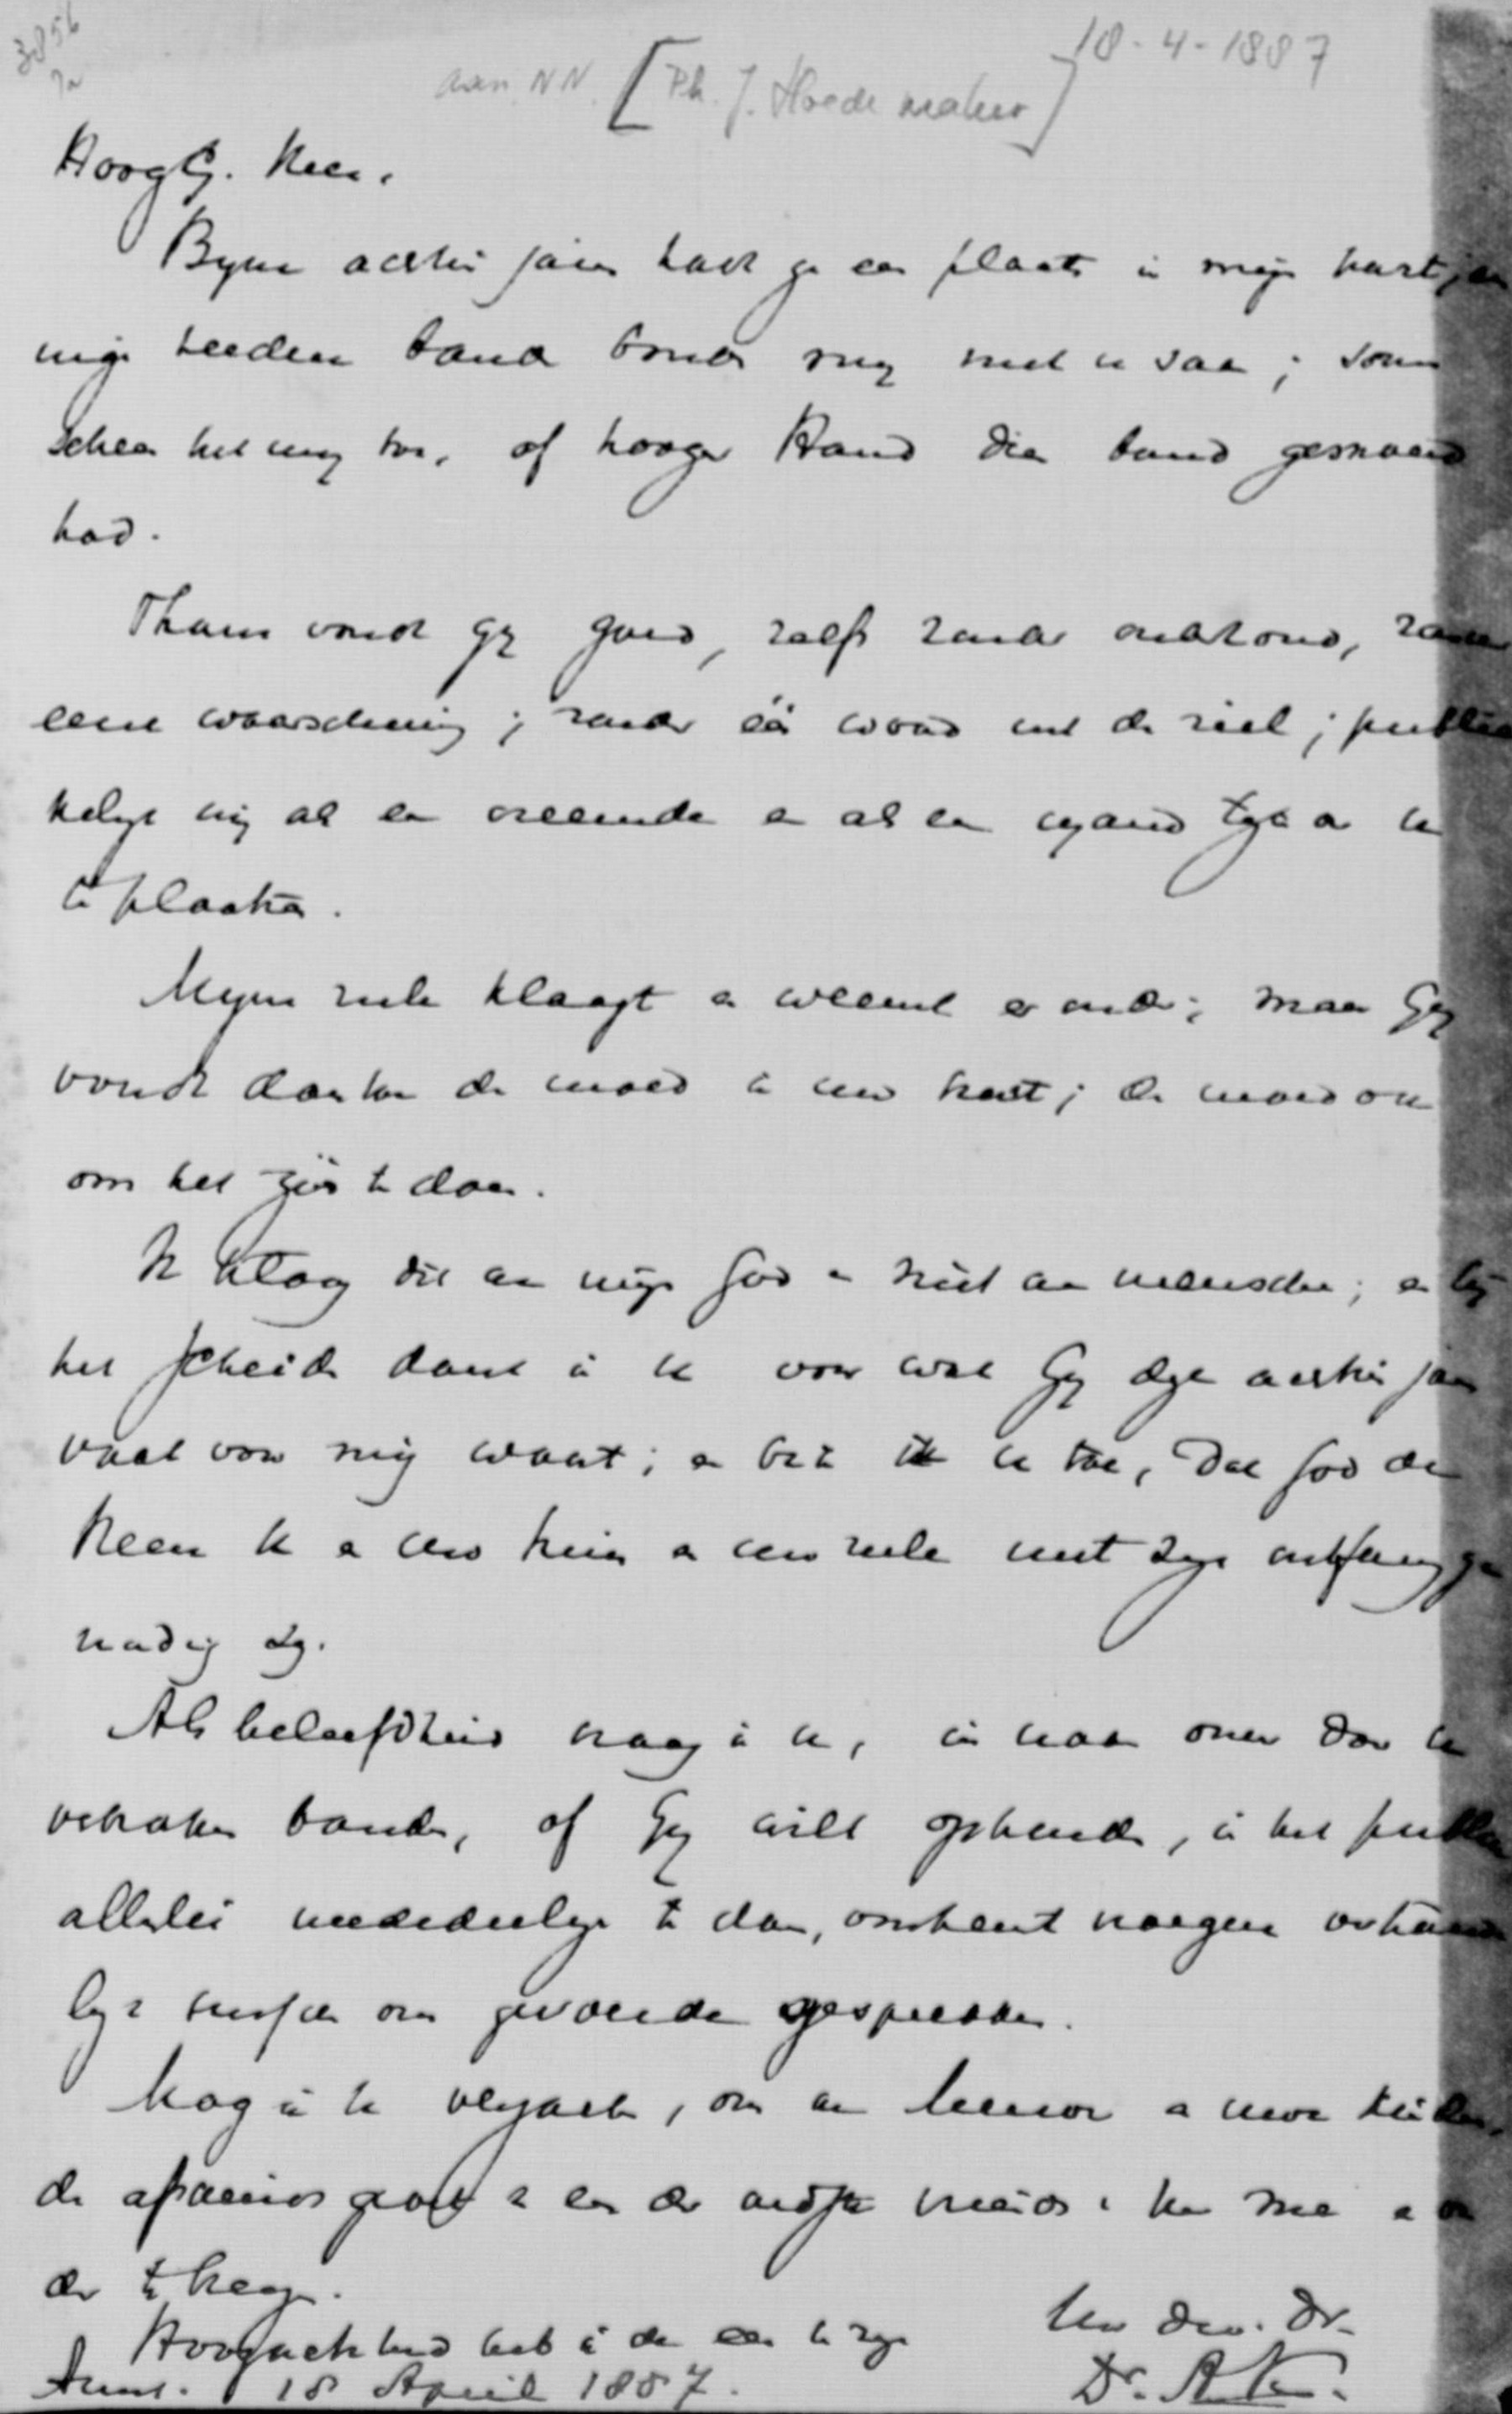 3856
aan NN. [Ph. J. Hoedemaker] 18-4-1887
HoogG. Heer.
Byna achtien jaren hadt ge een plaats in mijn hart; een
nige teedere band bond mij met u saam; soms
scheen het mij toe, of hooger Hand dien band gesnoerd
had.
Thans vondt gij goed, zelfs zonder onderhoud, zonder
eene waarschuwing; zonder één woord met de ziel; publie
kelijk mij als een vreemde en als een vyand tegen u
te plaatsen.
Mijne ziele klaagt en weent er onder; maar Gij
vondt daartoe de moed in uw hart; de moed om
om het zóó te doen.
Ik klaag dit aan mijn God en niet aan menschen; en bij
het scheiden dank ik u voor wat Gij deze achtien jaren
vaak voor mij waart; en bid ik u toe, dat God de
Heere U en uw huis en uw ziele met zijn ontferming ge
nadig zij.
Als beleefdheid vraag ik u, in naam onzer door u
verbroken banden, of Gij wilt ophouden, in het publiek
allerlei mededeelingen te doen, omtrent noegere vertrouwe
lijk tusschen ons gevoerde gesprekken.
Mag ik u verzoeken, om aan Mevrouw en uwe kinderen,
de afscheidsgroet van
der te brengen.
Hoogachtend heb ik de eer te zijn
Uw dw. Dr.
Amst. 18 April 1887.
Dr. A. K.